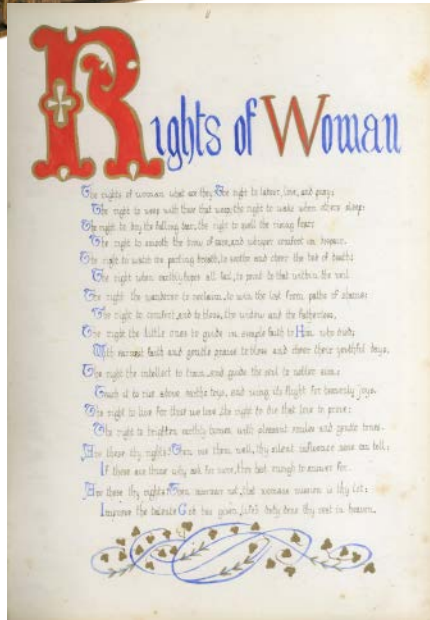 Rights of Woman
The rights of woman what are they, The right to labour, love, and pray;
The right to weep with those that weep, the right to wake when others sleep:
The right to dry the falling tear, the right to quell the rising fear:
The right to smooth the brow of care, and whisper comfort in despair.
The right to watch the parting breath, to soothe and cheer the bed of death;
The right when earthly hopes all fail, to point to that within the veil
The right the wanderer to reclaim, to win the lost from paths of shame:
The right to comfort, and to bless, the widow and the fatherless,
The right the little ones to guide in simple faith to Him who died;
With earnest faith and gentle praise to bless and cheer their youthful days,
The right the intellect to train, and guide the soul to nobler aim:
Teach it to rise above earths toys, and wing its flight for heavenly joys.
The right to live for those we love, the right to die that love to prove:
The right to brighten earthly homes with pleasant smiles and gentle tones.
Are these thy rights? Then use them well, thy silent influence none can tell:
If these are thine why ask for more, thou hast enough to answer for.
Are these thy rights? Then murmur not, that womans mission is thy lot:
Improve the talents God has given, life's duty done thy rest in heaven.